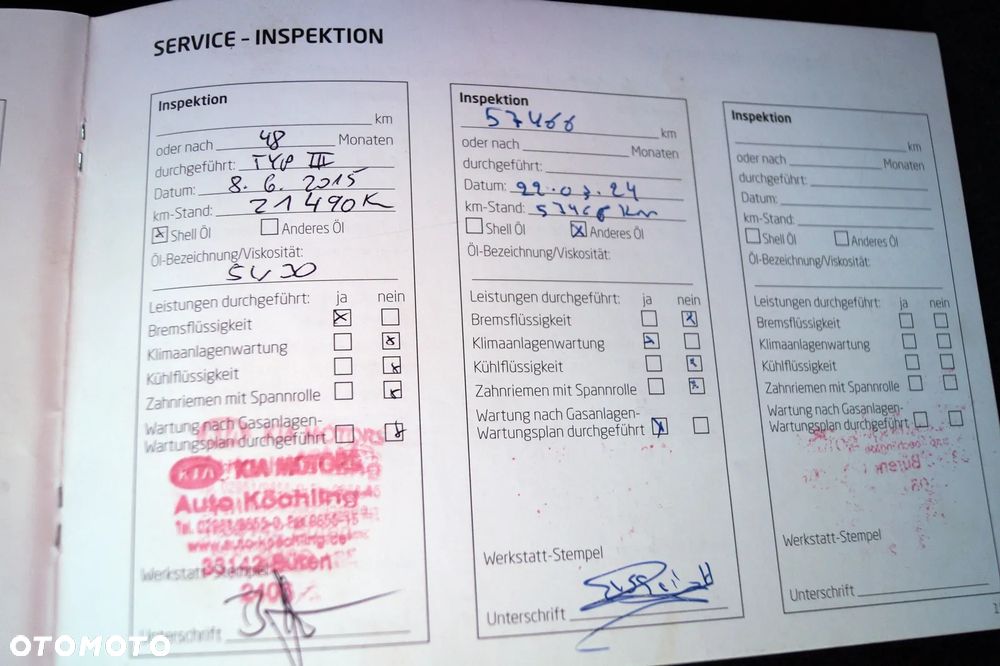 SERVICE – INSPEKTION
Inspektion
km
oder nach 48 Monaten
durchgeführt: TYP III
Datum: 8.6.2015
km-Stand: 21490K
Shell Öl Anderes Öl
Öl-Bezeichnung/Viskosität:
5W30
Leistungen durchgeführt: ja nein
Bremsflüssigkeit
Klimaanlagenwartung
Kühlflüssigkeit
Zahnriemen mit Spannrolle
Wartung nach Gasanlagen-
Wartungsplan durchgeführt
KIA KIA MOTORS
Auto Köchling
www.auto-koechling.de
33142 Büren
Werkstatt-Stempel
Unterschrift
Inspektion
57466 km
oder nach Monaten
durchgeführt:
Datum: 22.03.24
km-Stand: 57466 Km
Shell Öl Anderes Öl
Öl-Bezeichnung/Viskosität:
Leistungen durchgeführt: ja nein
Bremsflüssigkeit
Klimaanlagenwartung
Kühlflüssigkeit
Zahnriemen mit Spannrolle
Wartung nach Gasanlagen-
Wartungsplan durchgeführt
Werkstatt-Stempel
Unterschrift
Inspektion
km
oder nach Monaten
durchgeführt:
Datum:
km-Stand:
Shell Öl Anderes Öl
Öl-Bezeichnung/Viskosität:
Leistungen durchgeführt: ja nein
Bremsflüssigkeit
Klimaanlagenwartung
Kühlflüssigkeit
Zahnriemen mit Spannrolle
Wartung nach Gasanlagen-
Wartungsplan durchgeführt
Büren
Werkstatt-Stempel
Unterschrift
OTOMOTO